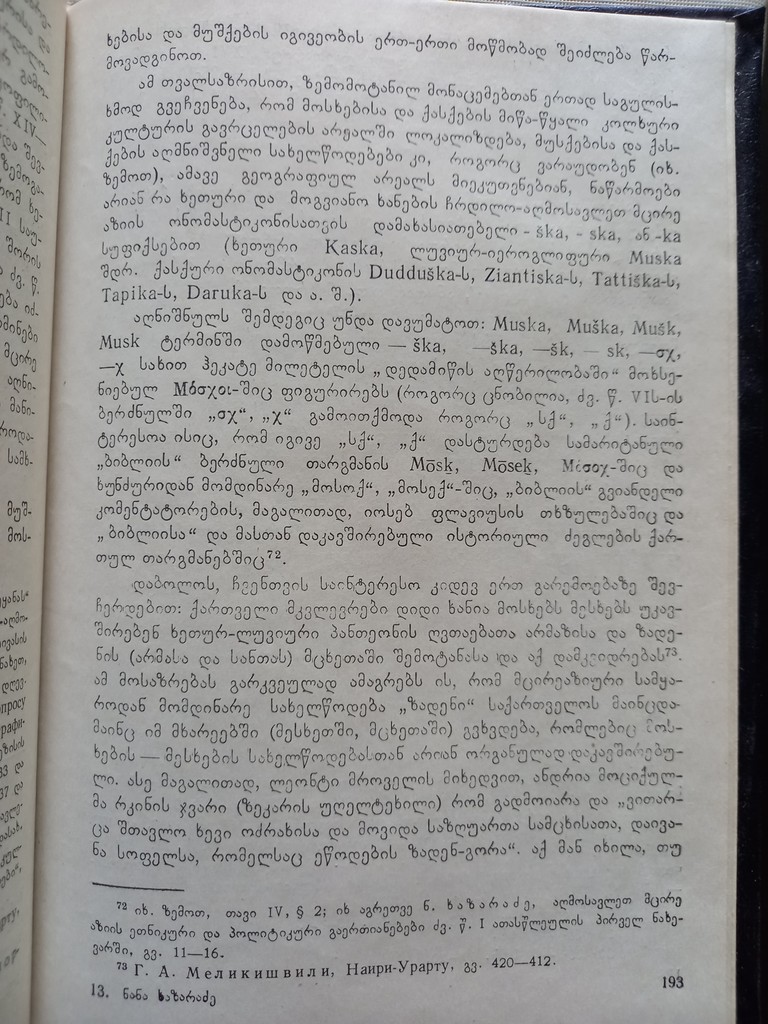 ხებისა და მუშქების იგივეობის ერთ-ერთი მოწმობად შეიძლება წარ-
მოვადგინოთ.
ამ თვალსაზრისით, ზემომოტანილ მონაცემებთან ერთად საგულის-
ხმოდ გვეჩვენება, რომ მოსხებისა და ქასქების მიწა-წყალი კოლხური
კულტურის გავრცელების არეალში ლოკალიზდება, მუსქებისა და ქას-
ქების აღმნიშვნელი სახელწოდებები კი, როგორც ვარაუდობენ (იხ.
ზემოთ), ამავე გეოგრაფიულ არეალს მიეკუთვნებიან, ნაწარმოები
არიან რა ხეთური და მოგვიანო ხანების ჩრდილო-აღმოსავლეთ მცირე
აზიის ონომასტიკონისათვის დამახასიათებელი - ška, - ska, ან -ka
სუფიქსებით (ხეთური Kaska, ლუვიურ-იეროგლიფური Muska
შდრ. ქასქური ონომასტიკონის Dudduška-ს, Ziantiska-ს, Tattiška-ს,
Tapika-ს, Daruka-ს და ა. შ.).
აღნიშნულს შემდეგიც უნდა დავუმატოთ: Muska, Muška, Mušk,
Musk ტერმინში დამოწმებული — ška, —ška, —šk, — sk, —σχ,
—χ სახით ჰეკატე მილეტელის „დედამიწის აღწერილობაში“ მოხსე-
ნიებულ Μόσχοι-შიც ფიგურირებს (როგორც ცნობილია, ძვ. წ. VIს-ის
ბერძნულში „σχ“, „χ“ გამოითქმოდა როგორც „სქ“, „ქ“). საინ-
ტერესოა ისიც, რომ იგივე „სქ“, „ქ“ დასტურდება სამარიტანული
„ბიბლიის“ ბერძნული თარგმანის Mōsk, Mōsek, Μεσοχ-შიც და
ხუნძურიდან მომდინარე „მოსოქ“, „მოსექ“-შიც, „ბიბლიის“ გვიანდელი
კომენტატორების, მაგალითად, იოსებ ფლავიუსის თხზულებაშიც და
„ბიბლიისა“ და მასთან დაკავშირებული ისტორიული ძეგლების ქარ-
თულ თარგმანებშიც⁷².
დაბოლოს, ჩვენთვის საინტერესო კიდევ ერთ გარემოებაზე შევ-
ჩერდებით: ქართველი მკვლევრები დიდი ხანია მოსხებს მესხებს უკავ-
შირებენ ხეთურ-ლუვიური პანთეონის ღვთაებათა არმაზისა და ზადე-
ნის (არმასა და სანთას) მცხეთაში შემოტანასა და აქ დამკვიდრებას⁷³.
ამ მოსაზრებას გარკვეულად ამაგრებს ის, რომ მცირეაზიური სამყა-
როდან მომდინარე სახელწოდება „ზადენი“ საქართველოს მაინცდა-
მაინც იმ მხარეებში (მესხეთში, მცხეთაში) გვხვდება, რომლებიც მოს-
ხების — მესხების სახელწოდებასთან არიან ორგანულად დაკავშირებუ-
ლი. ასე მაგალითად, ლეონტი მროველის მიხედვით, ანდრია მოციქულ-
მა რკინის ჯვარი (ზეკარის უღელტეხილი) რომ გადმოიარა და „ვითარ-
ცა შთავლო ხევი ოძრახისა და მოვიდა საზღუართა სამცხისათა, დაივა-
ნა სოფელსა, რომელსაც ეწოდების ზადენ-გორა“. აქ მან იხილა, თუ
⁷² იხ. ზემოთ, თავი IV, § 2; იხ აგრეთვე ნ. ხაზარაძე, აღმოსავლეთ მცირე
აზიის ეთნიკური და პოლიტიკური გაერთიანებები ძვ. წ. I ათასწლეულის პირველ ნახე-
ვარში, გვ. 11—16.
⁷³ Г. А. Меликишвили, Наири-Урарту, გვ. 420—412.
13. ნანა ხაზარაძე
193